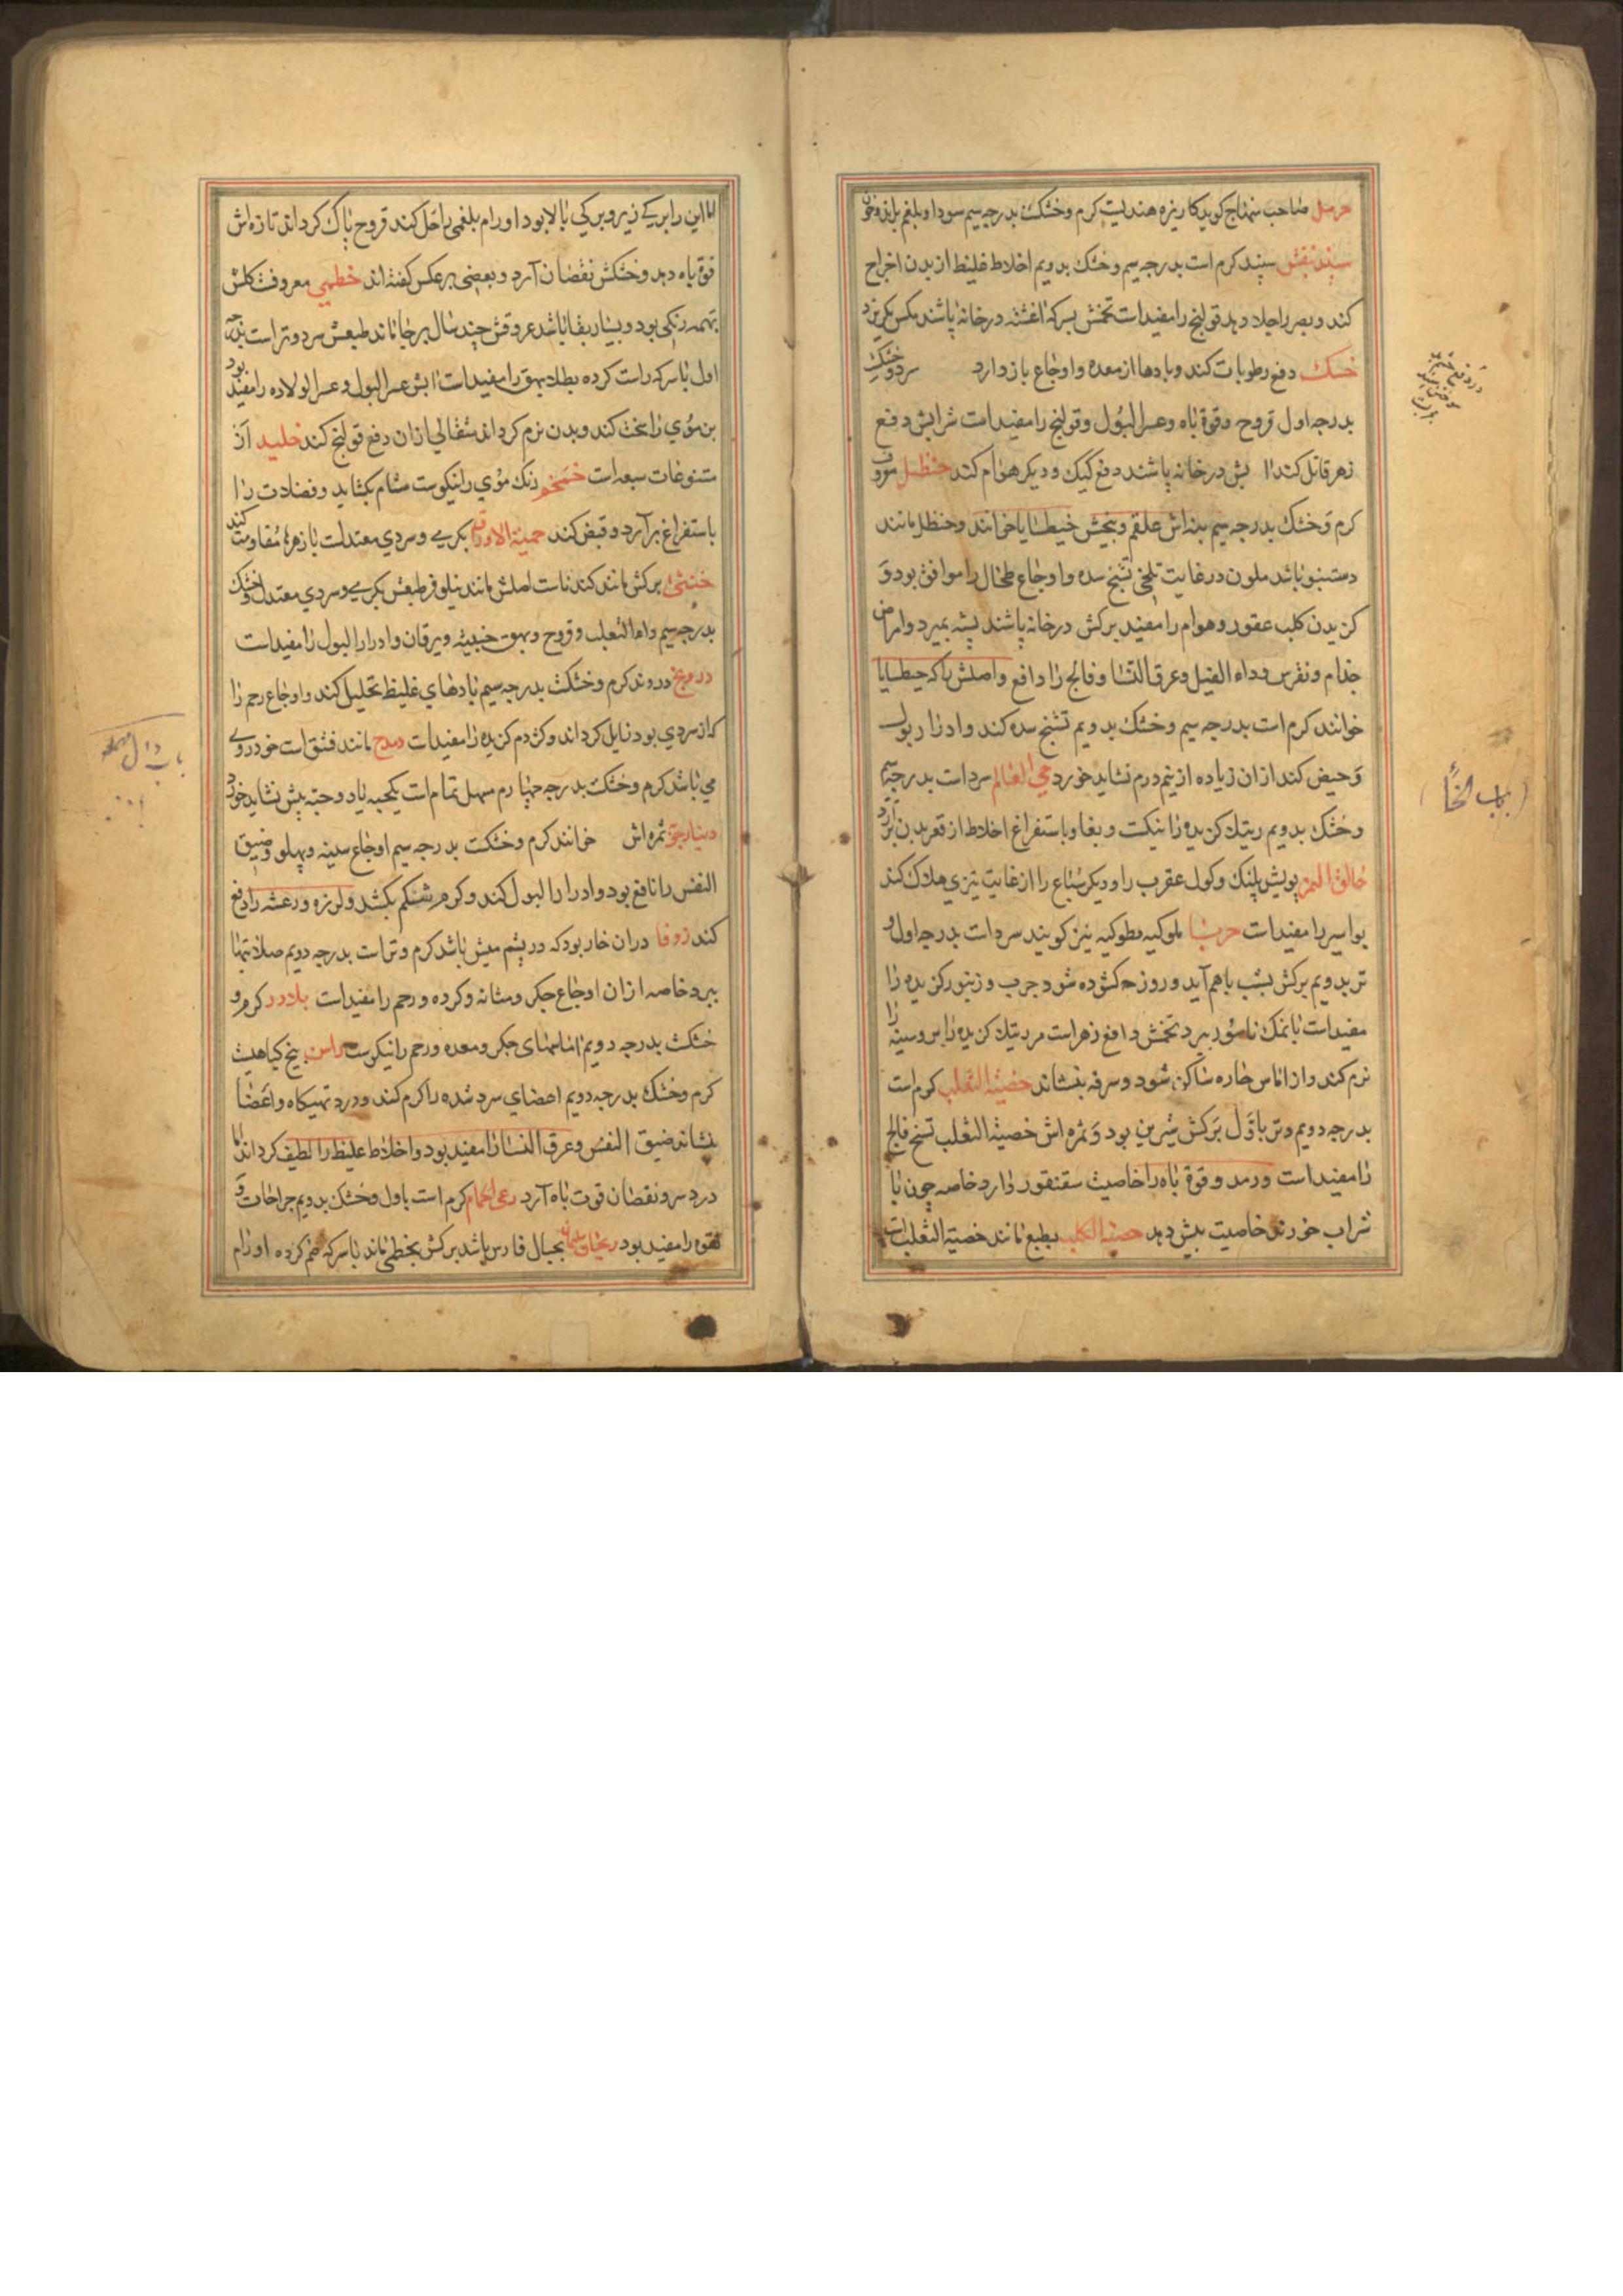 حرمل صاحب منهاج کوید کا ریزه هندیست کرم و خشک بدرجه سیم سودا و بلغم براند و خون
سپند کرم است بدرجه سیم و خشک بدویم اخلاط غلیظ از بدن اخراج
کند و بصر را جلا دهد قولنج را مفید است تخمش بسرکه اغشته در خانه پاشند مکس بکریزد
خسک دفع رطوبات کند و بادها از معده و اوجاع باز دارد سرد و خشک
بدرجه اول قروح و قوة باه و عسر البول و قولنج را مفید است شرابش دفع
زهر قاتل کند بش در خانه پاشند دفع کیک و دیکر هوام کند حنظل معروف
کرم و خشک بدرجه سیم علقم و بیخش خیطایا خوانند و حنظل مانند
دستنبو باشد ملون در غایت تلخی تشنج سده و اوجاع طحال را موافق بود و
کزیدن کلب عقور و هوام را مفید برکش در خانه پاشند پشه بمیرد و امراض
جذام و نقرس و داء الفیل و عرق النسا و فالج را دافع و اصلش را که جیطایا
خوانند کرم است بدرجه سیم و خشک بدویم تشنج سده کند و ادرار بول
و حیض کند ازان زیاده از نیم درم نشاید خورد حی العالم سرد است بدرجه سیم
و خشک بدویم رتیلا کزیده را نیکست و بغا و باستفراغ اخلاط از قعر بدن برآرد
خانق النمر پویش پلنک و کول عقرب را و دیکر سباع را از غایت تیزی هلاک کند
بواسیر را مفید است ملوکیه نیز کویند سرد است بدرجه اول و
تر بدویم برکش بشب باهم آید و روز کشوده شود جرب و زنبور کزیده را
مفید است با نمک ناصور ببرد تخمش دافع زهر است مر رتیلا کزیده را بر و سینه را
نرم کند و از اماس حاره ساکن شود و سرفه بنشاند خصیة الثعلب کرم است
بدرجه دویم و تر باول برکش شیرین بود و ثمره اش خصیة الثعلب تشنج فالج
را مفید است و رمد و قوة باه را خاصیت سقنقور دارد خاصه چون با
شراب خورند خاصیت بیش دهد خصیة الکلب بطبع مانند خصیة الثعلب است
باب الخاء
اما این را بریکی زیر و بریکی بالا بود اورام بلغمی را حل کند قروح پاک کرداند تازه اش
قوة باه دهد و خشکش نقصان آرد و بعضی برعکس کفته اند خطمی معروفست کلش
بهمه رنکی بود و بسیار بقا باشد عروقش چند سال برجا ماند طبعش سرد و تر است بدرجه
اول با سرکه راست کرده بطلا بهق را مفید است ابش عسر البول و عسر الولاده را مفید بود
بن موی را سخت کند و بدن نرم کرداند مثقالی ازان دفع قولنج کند از
متنوعات سبعه است رنک موی را نیکوست مشام بکشاید و فضلات را
باستفراغ برآرد و قبض کند بکرمی و سردی معتدلست با زهرها مقاومت کند
خنثی برکش مانند کندناست اصلش مانند نیلوفر طبعش بکرمی و سردی معتدل و خشک
بدرجه سیم داء الثعلب و قروح و بهق خبیثه و یرقان و ادرار البول را مفید است
درونج دروند کرم و خشکست بدرجه سیم بادهای غلیظ تحلیل کند و اوجاع رحم را
که از سردی بود زایل کرداند و کژدم کزیده را مفید است مانند فستق است خودروی
می باشد کرم و خشکست بدرجه چهارم سهل تمام است یکحبه یا دو حبه بیش نشاید خورد
ثمره اش خوانند کرم و خشکست بدرجه سیم اوجاع سینه و پهلو و ضیق
النفس را نافع بود و ادرار البول کند و کرم شکم بکشد و لرزه و رعشه را دفع
کند زوفا دران خار بود که در پشم میش باشد کرم و تر است بدرجه دویم صلابتها
ببرد خاصه ازان اوجاع جکر و مثانه و کرده و رحم را مفید است بلادر کرم و
خشکست بدرجه دویم اماسهای جکر و معده و رحم را نیکوست راسن بیخ کیاهیست
کرم و خشک بدرجه دویم اعضای سرد شده را کرم کند و درد تهیکاه و اعضا
بنشاند ضیق النفس و عرق النسا را مفید بود و اخلاط غلیظ را لطیف کرداند اما
درد سر و نقصان قوت باه آرد رعی الحمام کرم است باول و خشک بدویم جراحات و
لقوه را مفید بود بجبال فارس باشد برکش بخطمی ماند با سرکه ضم کرده اورام
باب دال